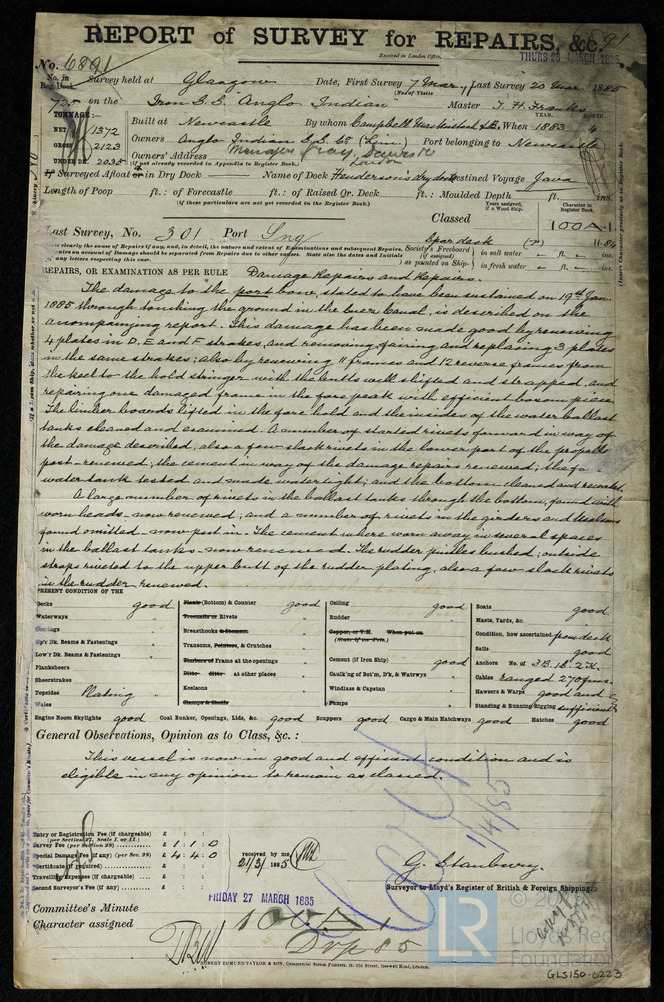 REPORT of SURVEY for REPAIRS, &c.
Received in London Office,
THURS 26 MARCH 1885
No. 6891
No. in Reg. Book. Survey held at Glasgow Date, First Survey 7 Mar, Last Survey 20 Mar 1885
(No. of Visits)
725 on the Iron S.S. "Anglo Indian" Master T. H. Franks
TONNAGE:— YEAR. MONTH.
NET 1372 Built at Newcastle By whom Campbell Mackintosh & B. When 1883 4
GROSS 2123 Owners Anglo Indian S.S. Co (Lim.) Port belonging to Newcastle
UNDER DK. 2035 Owners' Address
(if not already recorded in Appendix to Register Book.)
If Surveyed Afloat or in Dry Dock Name of Dock Henderson's dry dock Destined Voyage Java
Length of Poop ft.: of Forecastle ft.: of Raised Qr. Deck ft.: Moulded Depth ft. ins.
(if these particulars are not yet recorded in the Register Book.)
Years assigned, if a Wood ship. Character in Register Book.
Classed 100A.1.
Last Survey, No. 301 Port Sng
Spar deck (P) 11.84
Society's Freeboard (if assigned) as painted on Ship:— in salt water " ft. " ins:
in fresh water " ft. " ins:
REPAIRS, OR EXAMINATION AS PER RULE Damage Repairs and Repairs.
The damage to the port bow, stated to have been sustained on 19th Jan.
1885 through touching the ground in the Suez Canal, is described on the
accompanying report. This damage has been made good by renewing
4 plates in D, E and F strakes, and removing fairing and replacing 3 plates
in the same strakes; also by renewing 11 frames and 12 reverse frames from
the keel to the hold stringer with the butts well shifted and strapped, and
repairing one damaged frame in the fore peak with efficient bosom piece.
The limber boards lifted in the fore hold and the insides of the water ballast
tanks cleaned and examined. A number of started rivets forward in way of
the damage described, also a few slack rivets in the lower part of the propeller
post - renewed; the cement in way of the damage repairs renewed; the
water tank tested and made watertight, and the bottom cleaned and recoated.
A large number of rivets in the ballast tanks through the bottom, found with
worn heads - now renewed; and a number of rivets in the girders and
found omitted - now put in. The cement where worn away in several spaces
in the ballast tanks - now renewed. The rudder pintles bushed; outside
straps riveted to the upper butt of the rudder plating, also a few slack rivets
in the rudder renewed.
PRESENT CONDITION OF THE
Decks good
Waterways "
Coamings "
Up'r Dk. Beams & Fastenings "
Low'r Dk. Beams & Fastenings "
Planksheers
Sheerstrakes "
Topsides Plating "
Wales
Plank (Bottom) & Counter good
Treenails or Rivets "
Breasthooks & Stemson "
Transoms, Pointers, & Crutches "
Timbers of Frame at the openings "
Ditto Ditto at other places "
Keelsons "
Clamps & Shelfs
Ceiling good
Rudder "
Copper, or Y.M. When put on
(State if on Felt.)
Cement (if Iron Ship) good
Caulk'ng of Bot'm, D'k, & Watrwys "
Windlass & Capstan "
Pumps "
Boats good
Masts, Yards, &c. "
Condition, how ascertained from deck
Sails good
Anchors No. of 3B. 1S. 2K.
Cables ranged 270 fms.
Hawsers & Warps good and
Standing & Running Rigging sufficient
Engine Room Skylights good Coal Bunker, Openings, Lids, &c. good Scuppers good Cargo & Main Hatchways good Hatches good
General Observations, Opinion as to Class, &c.:
This vessel is now in good and efficient condition and is
eligible in my opinion to remain as classed.
Entry or Registration Fee (if chargeable) £ : :
(per Section 27, Scale I. or II.)
Survey Fee (per Section 28) £ 1 : 1 : 0
Special Damage Fee (if any) (per Sec. 28) £ 4 : 4 : 0
Certificate (if required) £ : :
Travelling Expenses (if chargeable) £ : :
Second Surveyor's Fee (if any) £ : :
received by me,
21/3/1885
G. Stanbury.
Surveyor to Lloyd's Register of British & Foreign Shipping.
11/4/85
FRIDAY 27 MARCH 1885
Committee's Minute
Character assigned 100A1
ROBERT EDMUND TAYLOR & SON, Commercial Steam Printers, 19, Old Street, Goswell Road, London.
LR
Lloyd's Register
Foundation
GLS150-0223